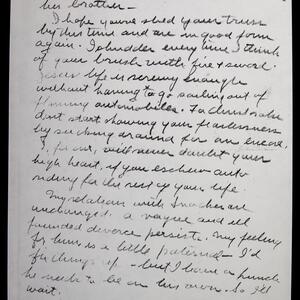 his brother —
I hope you've shed your truss
by this time and are in good form
again. I shudder every time I think
of your brush with fire & sword.
life is screwy enough
without having to go sailing out of
flaming automobiles. For Christ's sake
don't start showing your fearlessness
by sucking around for an encore.
I, for one, will never doubt your
high heart, if you eschew auto
riding for the rest of your life.
My relations with
unchanged. A vague and ill
founded divorce persists. My feeling
for him is a little paternal — I'd
fix things up — but I have a hunch
he needs to be on his own. So I'll
wait.